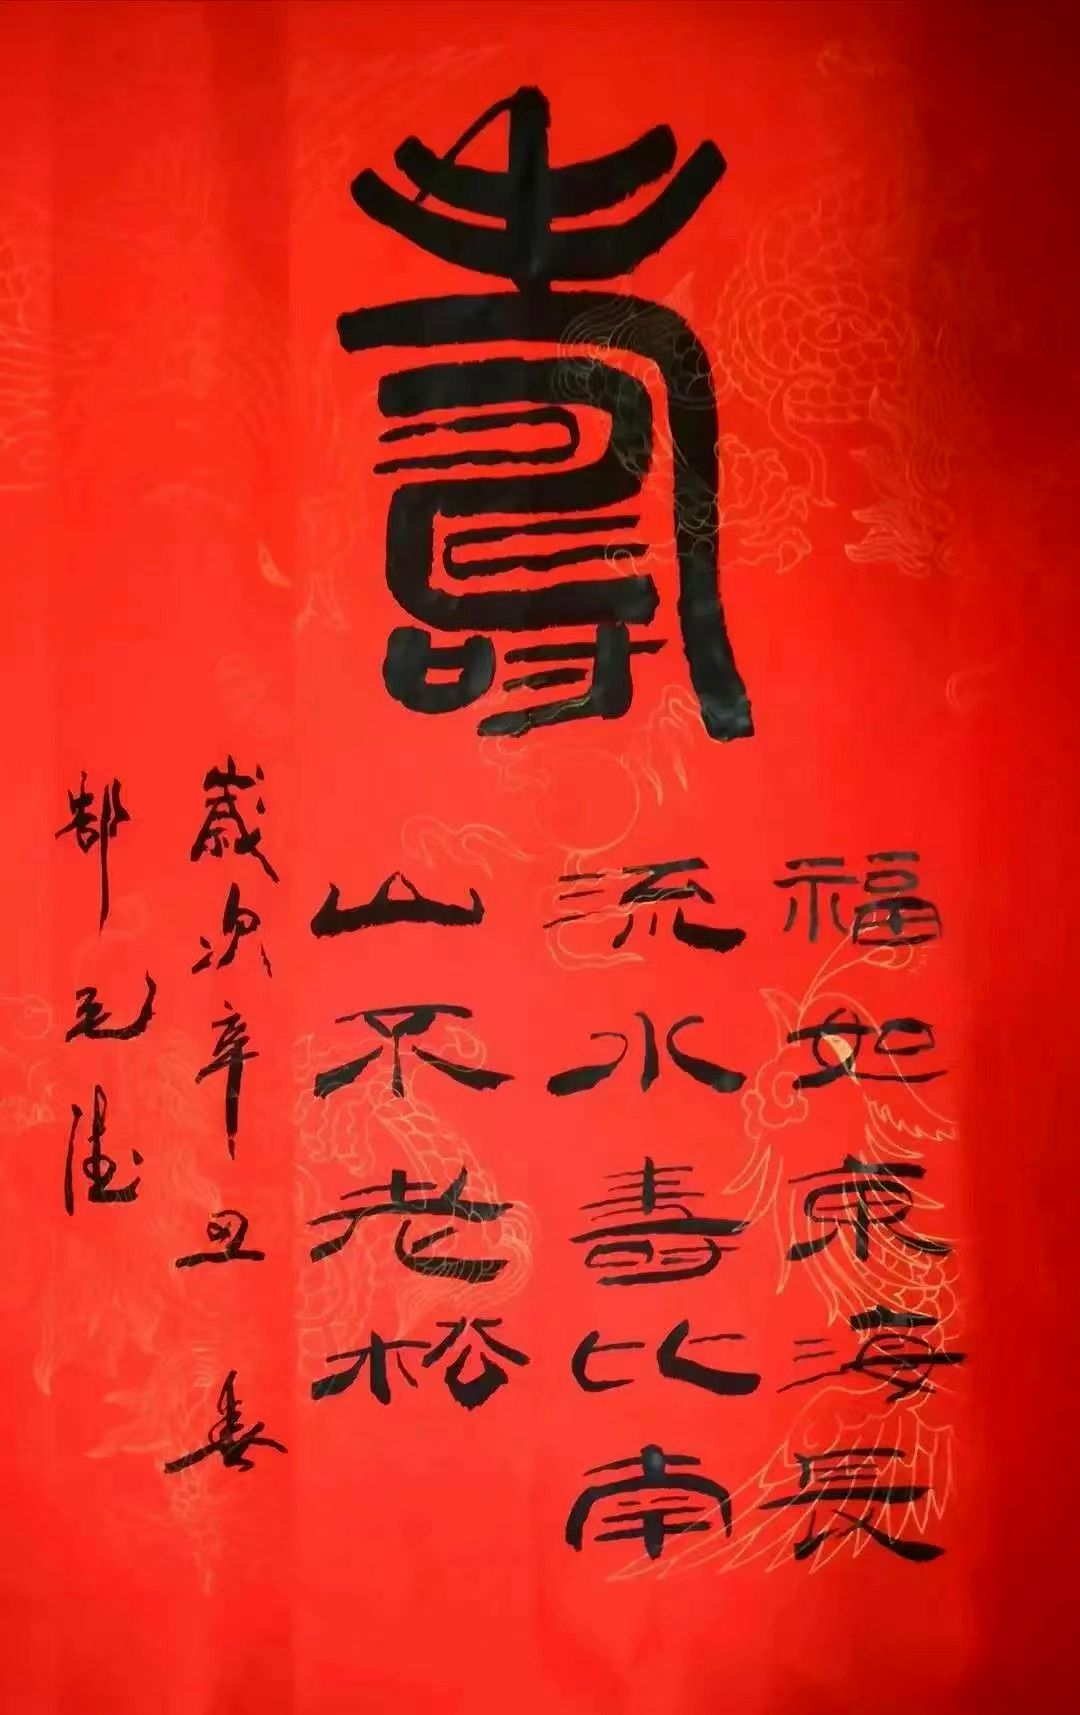 壽
福如東海長
流水壽比南
山不老松
歲次辛丑春
郜